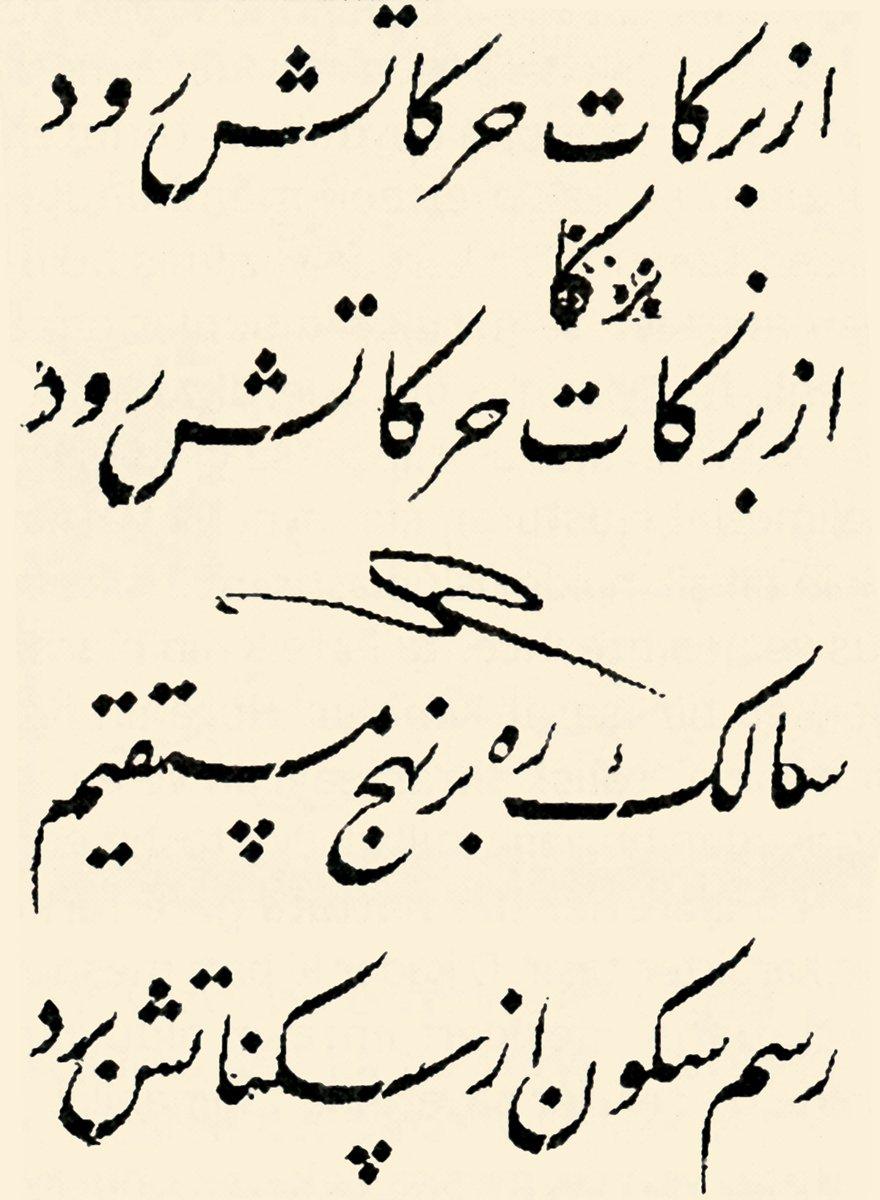 از برکات حرکاتش رود
از برکات حرکاتش رود
سالک ره بر نهج مستقیم
رسم سکون از سکناتش برد